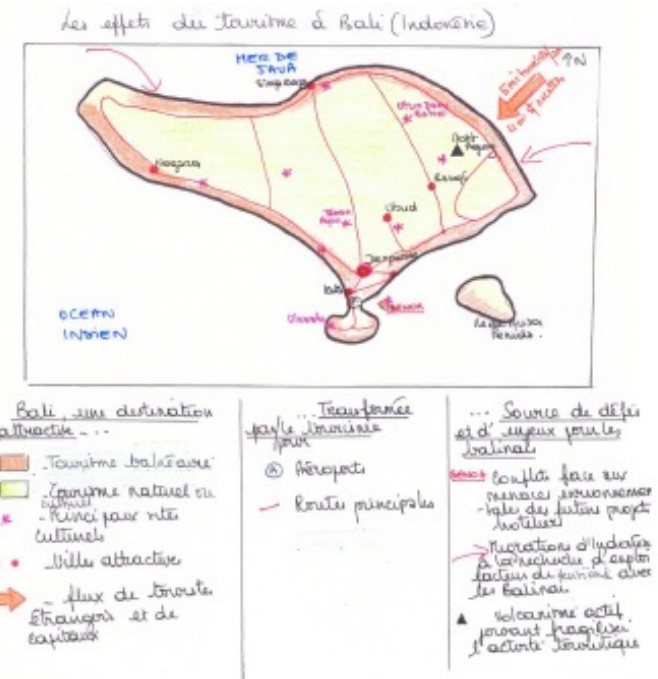 Les effets du tourisme à Bali (Indonésie)
MER DE
JAVA
Singaraja
N
Mont
Agung
Negara
Ubud
Denpasar
Kuta
BENOA
Uluwatu
Penida.
OCEAN
INDIEN
Bali, une destination
attractive ...
Tourisme balnéaire
Tourisme naturel ou
culturel
- Principaux sites
culturels
- Villes attractive
- flux de touristes
Etrangers et de
capitaux
... Transformée
par le tourisme
pour
Aéroports
Routes principales
... Source de défis
et d'enjeux pour les
balinais
BENOA Conflits face aux
menaces environnemen
-tales des futurs projets
hotelier
Migrations d'Indonésie
à la recherche d'emploi
facteur de avec
les Balinais
Volcanisme actif
pouvant fragiliser
l'activité touristique